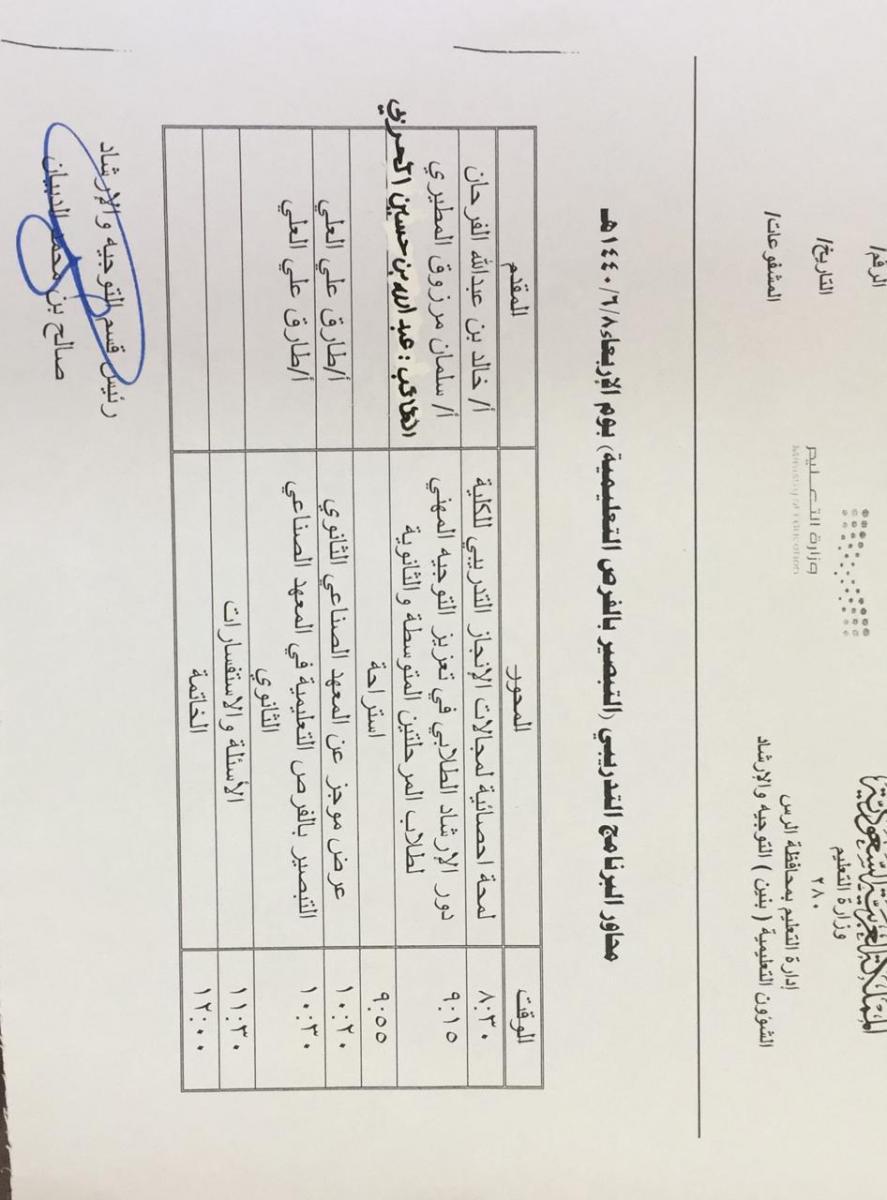 المملكة العربية السعودية
وزارة التعليم
٢٨٠
إدارة التعليم بمحافظة الرس
الشؤون التعليمية ( بنين ) التوجيه والإرشاد
وزارة التعليم
Ministry of Education
الرقم/
التاريخ/
المشفوعات/
محاور البرنامج التدريبي (التبصير بالفرص التعليمية) يوم الإربعاء ١٤٤٠/٦/٨هـ
الوقت المحور المقدم
٨:٣٠ لمحة احصائية لمجالات الإنجاز التدريبي للكلية أ/ خالد بن عبدالله الفرحان
٩:١٥ دور الإرشاد الطلابي في تعزيز التوجيه المهني أ/ سلمان مرزوق المطيري
لطلاب المرحلتين المتوسطة والثانوية الطالب : عبدالله بن حسين الحربي
٩:٥٥ استراحة
١٠:٢٠ عرض موجز عن المعهد الصناعي الثانوي أ/طارق علي العلي
١٠:٣٠ التبصير بالفرص التعليمية في المعهد الصناعي أ/طارق علي العلي
الثانوي
١١:٣٠ الأسئلة والاستفسارات
١٢:٠٠ الخاتمة
رئيس قسم التوجيه والإرشاد
صالح بن محمد الدبيان